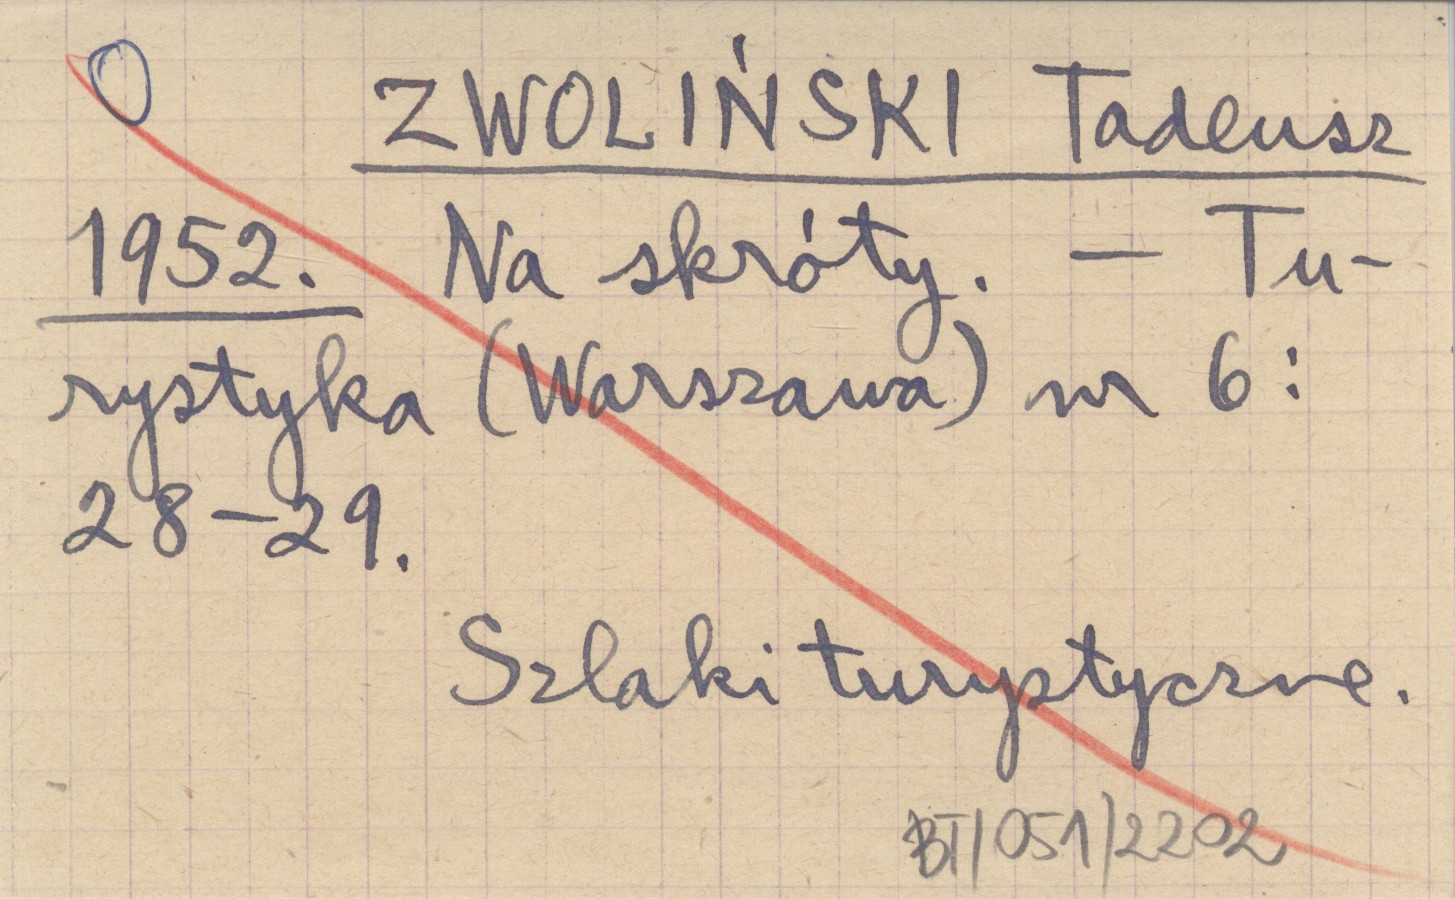 ZWOLIŃSKI Tadeusz
1952. Na skróty. — Tu-
rystyka (Warszawa) nr 6:
28-29.
Szlaki turystyczne.
BT/051/2202